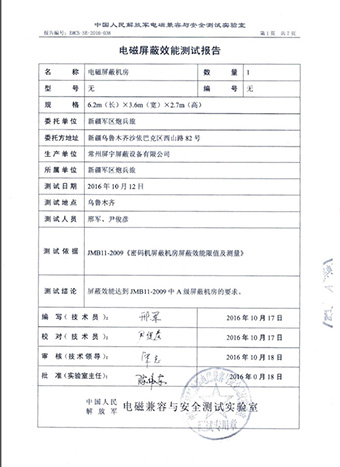 中国人民解放军电磁兼容与安全测试实验室
报告编号: EMCS-SE-2016-038 第 1 页 共 7 页
电磁屏蔽效能测试报告
名 称 电磁屏蔽机房 数 量 1
型 号 无 编 号 无
规 格 6.2m(长)×3.6m(宽)×2.7m(高)
委托单位 新疆军区炮兵旅
委托方地址 新疆乌鲁木齐沙依巴克区西山路 82 号
生产单位 常州屏宇屏蔽设备有限公司
所属单位 新疆军区炮兵旅
测试日期 2016 年 10 月 12 日
测试地点 乌鲁木齐
测试人员 邢军、尹俊彦
测试依据 JMB11-2009《密码机屏蔽机房屏蔽效能限值及测量》
测试结论 屏蔽效能达到 JMB11-2009 中 A 级屏蔽机房的要求。
编 写(技 术 员): 邢军 2016 年 10 月 17 日
校 对(技 术 员): 2016 年 10 月 17 日
审 核(技术领导): 2016 年 10 月 18 日
批 准(实验室主任): 2016 年 0 月 18 日
中国人民
解 放 军 电磁兼容与安全测试实验室
测试专用章